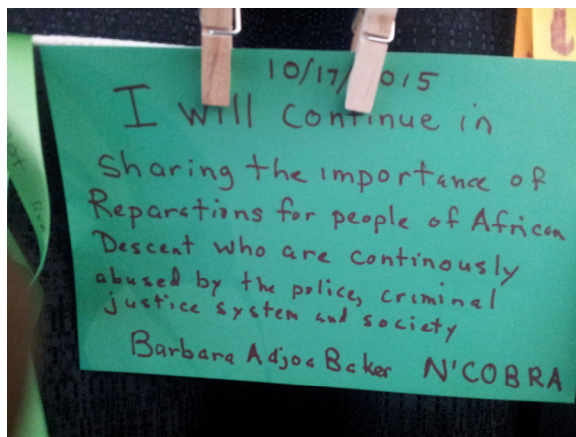 10/17/2015
I will continue in
Sharing the importance of
Reparations for people of African
Descent who are continously
abused by the police, criminal
justice system and society
Barbara Adjoa Baker N'COBRA